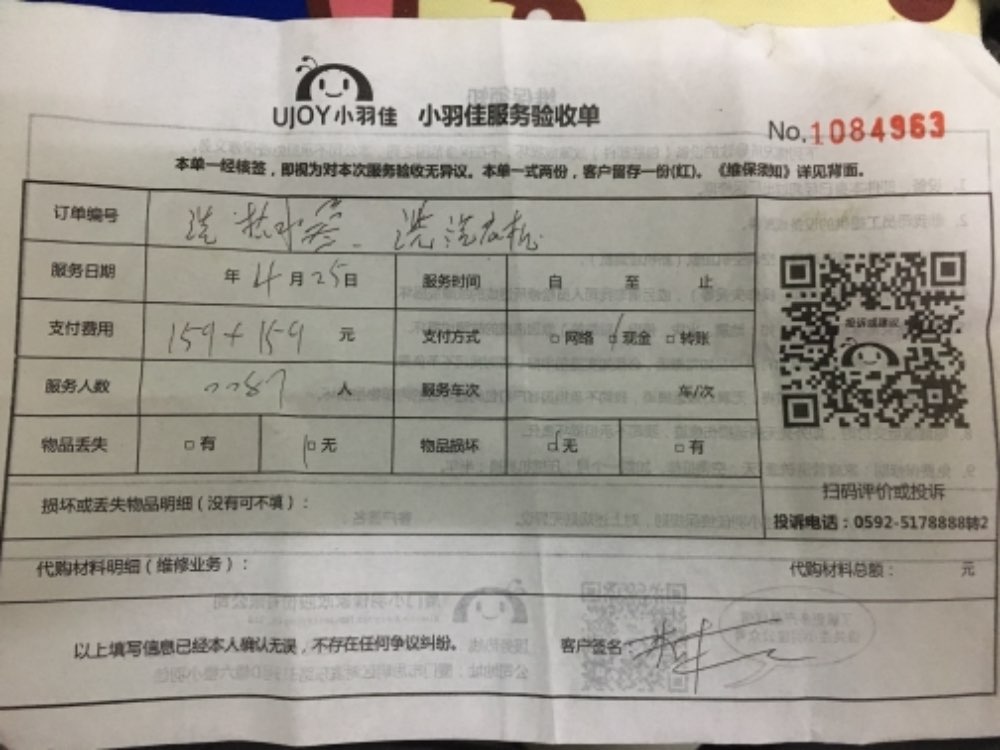 UJOY小羽佳 小羽佳服务验收单
No.1084963
本单一经核签，即视为对本次服务验收无异议。本单一式两份，客户留存一份(红)。《维保须知》详见背面。
订单编号 洗热水器、洗洗衣机
服务日期 年4月25日 服务时间 自 至 止
支付费用 159+159 元 支付方式 □网络 □现金 □转账
服务人数 人 服务车次 车/次
物品丢失 □有 □无 物品损坏 □无 □有
投诉或建议
扫码评价或投诉
损坏或丢失物品明细（没有可不填）：
投诉电话：0592-5178888转2
代购材料明细（维修业务）： 代购材料总额： 元
以上填写信息已经本人确认无误，不存在任何争议纠纷。 客户签名：